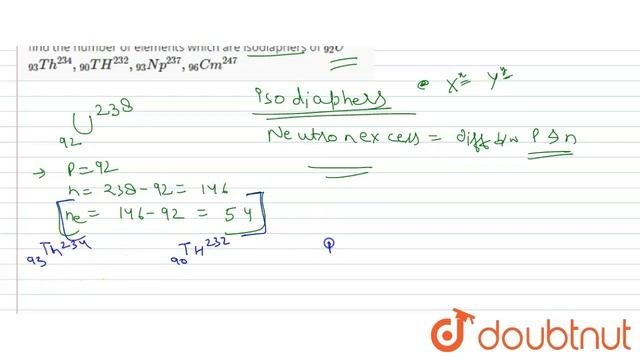 find the number of elements which are isodiaphers of ₉₂U
₉₃Th²³⁴, ₉₀TH²³², ₉₃Np²³⁷, ₉₆Cm²⁴⁷
Isodiaphers
Xˣ Yʸ
₉₂U²³⁸
Neutron excess = diff b/w P & n
→ P = 92
n = 238 - 92 = 146
ne = 146 - 92 = 54
₉₃Th²³⁴ ₉₀TH²³²
doubtnut